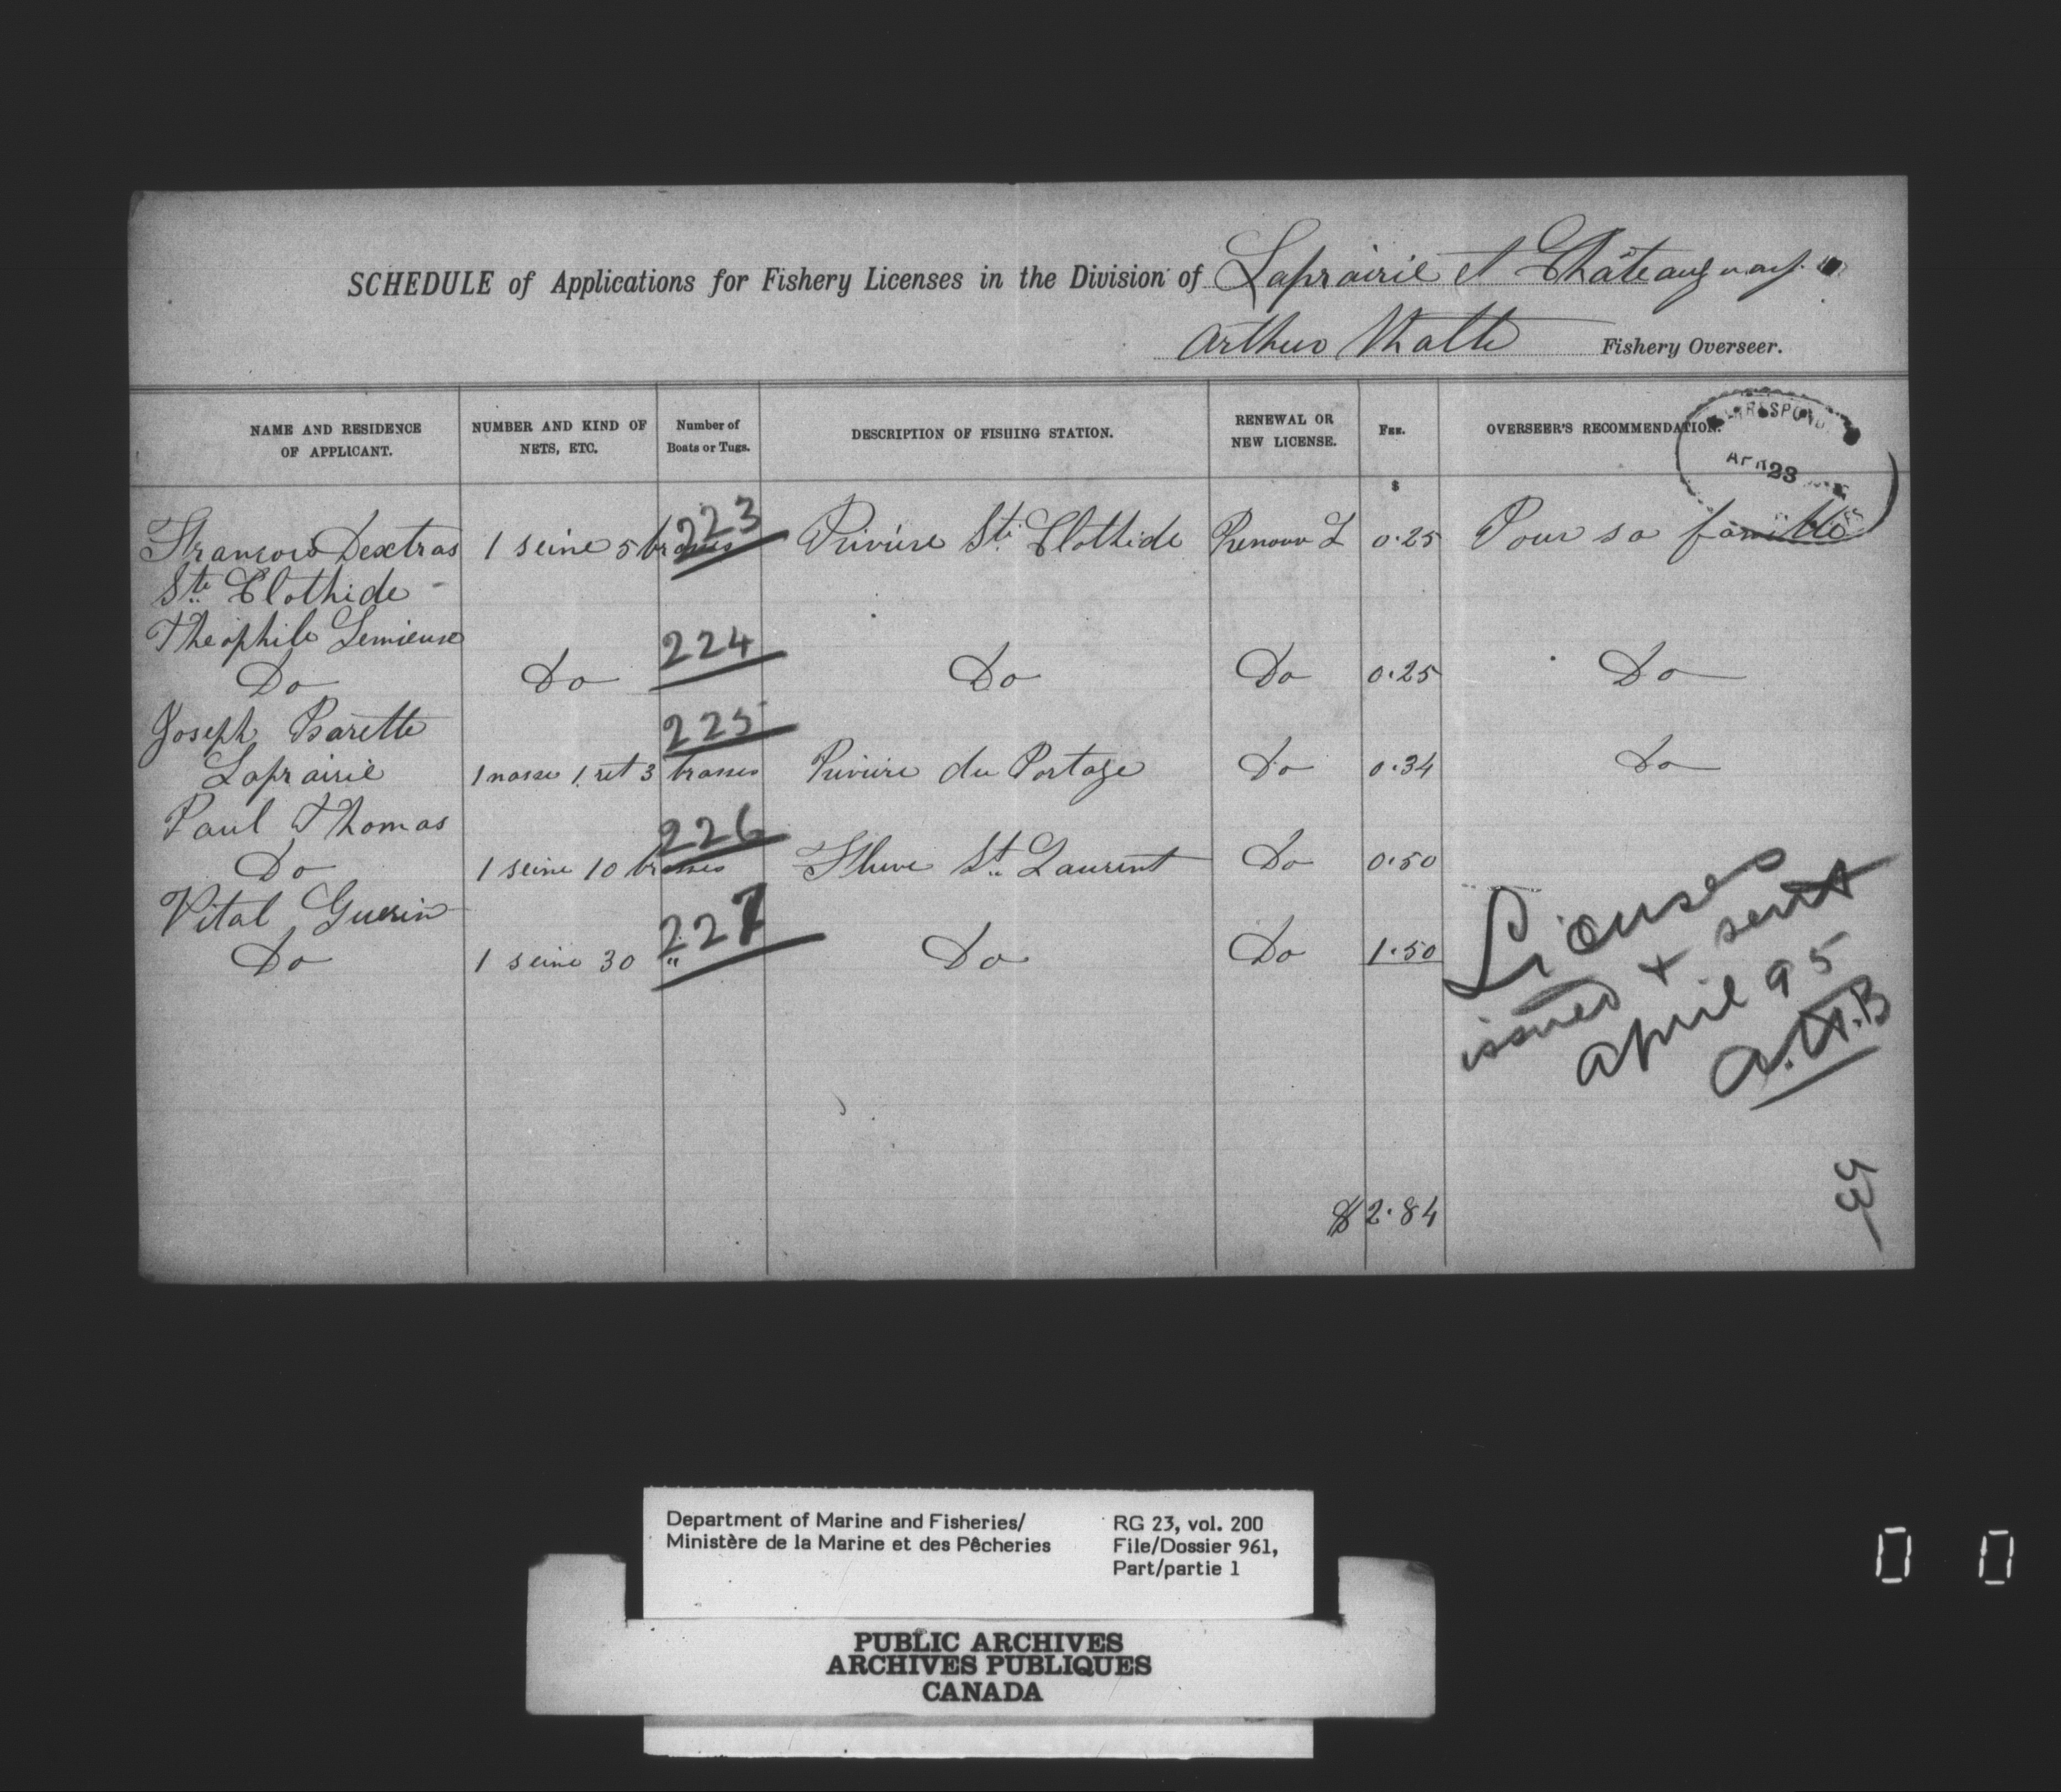 SCHEDULE of Applications for Fishery Licenses in the Division of Laprairie et Châteauguay.
Arthur Fishery Overseer.
NAME AND RESIDENCE OF APPLICANT. NUMBER AND KIND OF NETS, ETC. Number of Boats or Tugs. DESCRIPTION OF FISHING STATION. RENEWAL OR NEW LICENSE. FEE. OVERSEER'S RECOMMENDATION.
APR 23
$
François Dextras 1 seine 5 brasses 223 Rivière Ste Clothide Renouv L 0.25 Pour sa famille
Ste Clothide
Théophile Lemieux 224
Do Do Do Do 0.25 Do
Joseph Barette 225
Laprairie 1 nasse 1 ret 3 brasses Rivière du Portage Do 0.34 Do
Paul Thomas 226
Do 1 seine 10 brasses Fleuve St. Laurent Do 0.50
Vital Guerin 227
Do 1 seine 30 " Do Do 1.50
Licenses
issued + sent
April 95
$2.84
33
Department of Marine and Fisheries/ RG 23, vol. 200
Ministère de la Marine et des Pêcheries File/Dossier 961,
Part/partie 1
PUBLIC ARCHIVES
ARCHIVES PUBLIQUES
CANADA
0 0